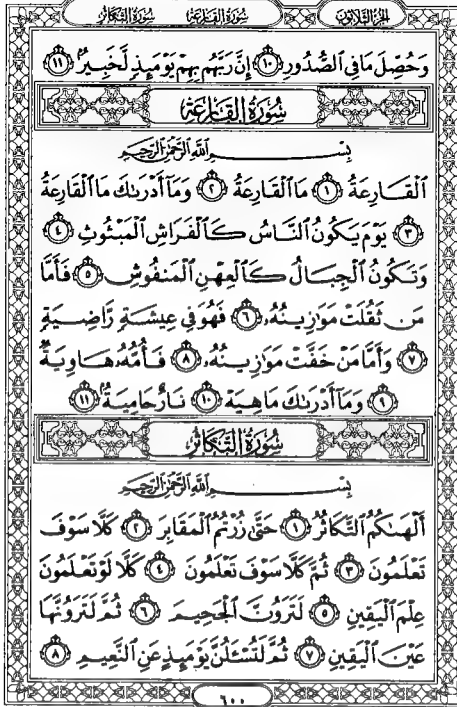 سُورَةُ التَّكَاثُرِ سُورَةُ القَارِعَةِ الجُزْءُ الثَّلَاثُونَ
وَحُصِّلَ مَا فِي ٱلصُّدُورِ ١٠ إِنَّ رَبَّهُم بِهِمْ يَوْمَئِذٍ لَّخَبِيرٌ ١١
سُورَةُ القَارِعَةِ
بِسْمِ ٱللَّهِ ٱلرَّحْمَٰنِ ٱلرَّحِيمِ
ٱلْقَارِعَةُ ١ مَا ٱلْقَارِعَةُ ٢ وَمَآ أَدْرَىٰكَ مَا ٱلْقَارِعَةُ
٣ يَوْمَ يَكُونُ ٱلنَّاسُ كَٱلْفَرَاشِ ٱلْمَبْثُوثِ ٤
وَتَكُونُ ٱلْجِبَالُ كَٱلْعِهْنِ ٱلْمَنفُوشِ ٥ فَأَمَّا
مَن ثَقُلَتْ مَوَٰزِينُهُۥ ٦ فَهُوَ فِى عِيشَةٍ رَّاضِيَةٍ
٧ وَأَمَّا مَنْ خَفَّتْ مَوَٰزِينُهُۥ ٨ فَأُمُّهُۥ هَاوِيَةٌ
٩ وَمَآ أَدْرَىٰكَ مَا هِيَهْ ١٠ نَارٌ حَامِيَةٌۢ ١١
سُورَةُ التَّكَاثُرِ
بِسْمِ ٱللَّهِ ٱلرَّحْمَٰنِ ٱلرَّحِيمِ
أَلْهَىٰكُمُ ٱلتَّكَاثُرُ ١ حَتَّىٰ زُرْتُمُ ٱلْمَقَابِرَ ٢ كَلَّا سَوْفَ
تَعْلَمُونَ ٣ ثُمَّ كَلَّا سَوْفَ تَعْلَمُونَ ٤ كَلَّا لَوْ تَعْلَمُونَ
عِلْمَ ٱلْيَقِينِ ٥ لَتَرَوُنَّ ٱلْجَحِيمَ ٦ ثُمَّ لَتَرَوُنَّهَا
عَيْنَ ٱلْيَقِينِ ٧ ثُمَّ لَتُسْـَٔلُنَّ يَوْمَئِذٍ عَنِ ٱلنَّعِيمِ ٨
٦٠٠